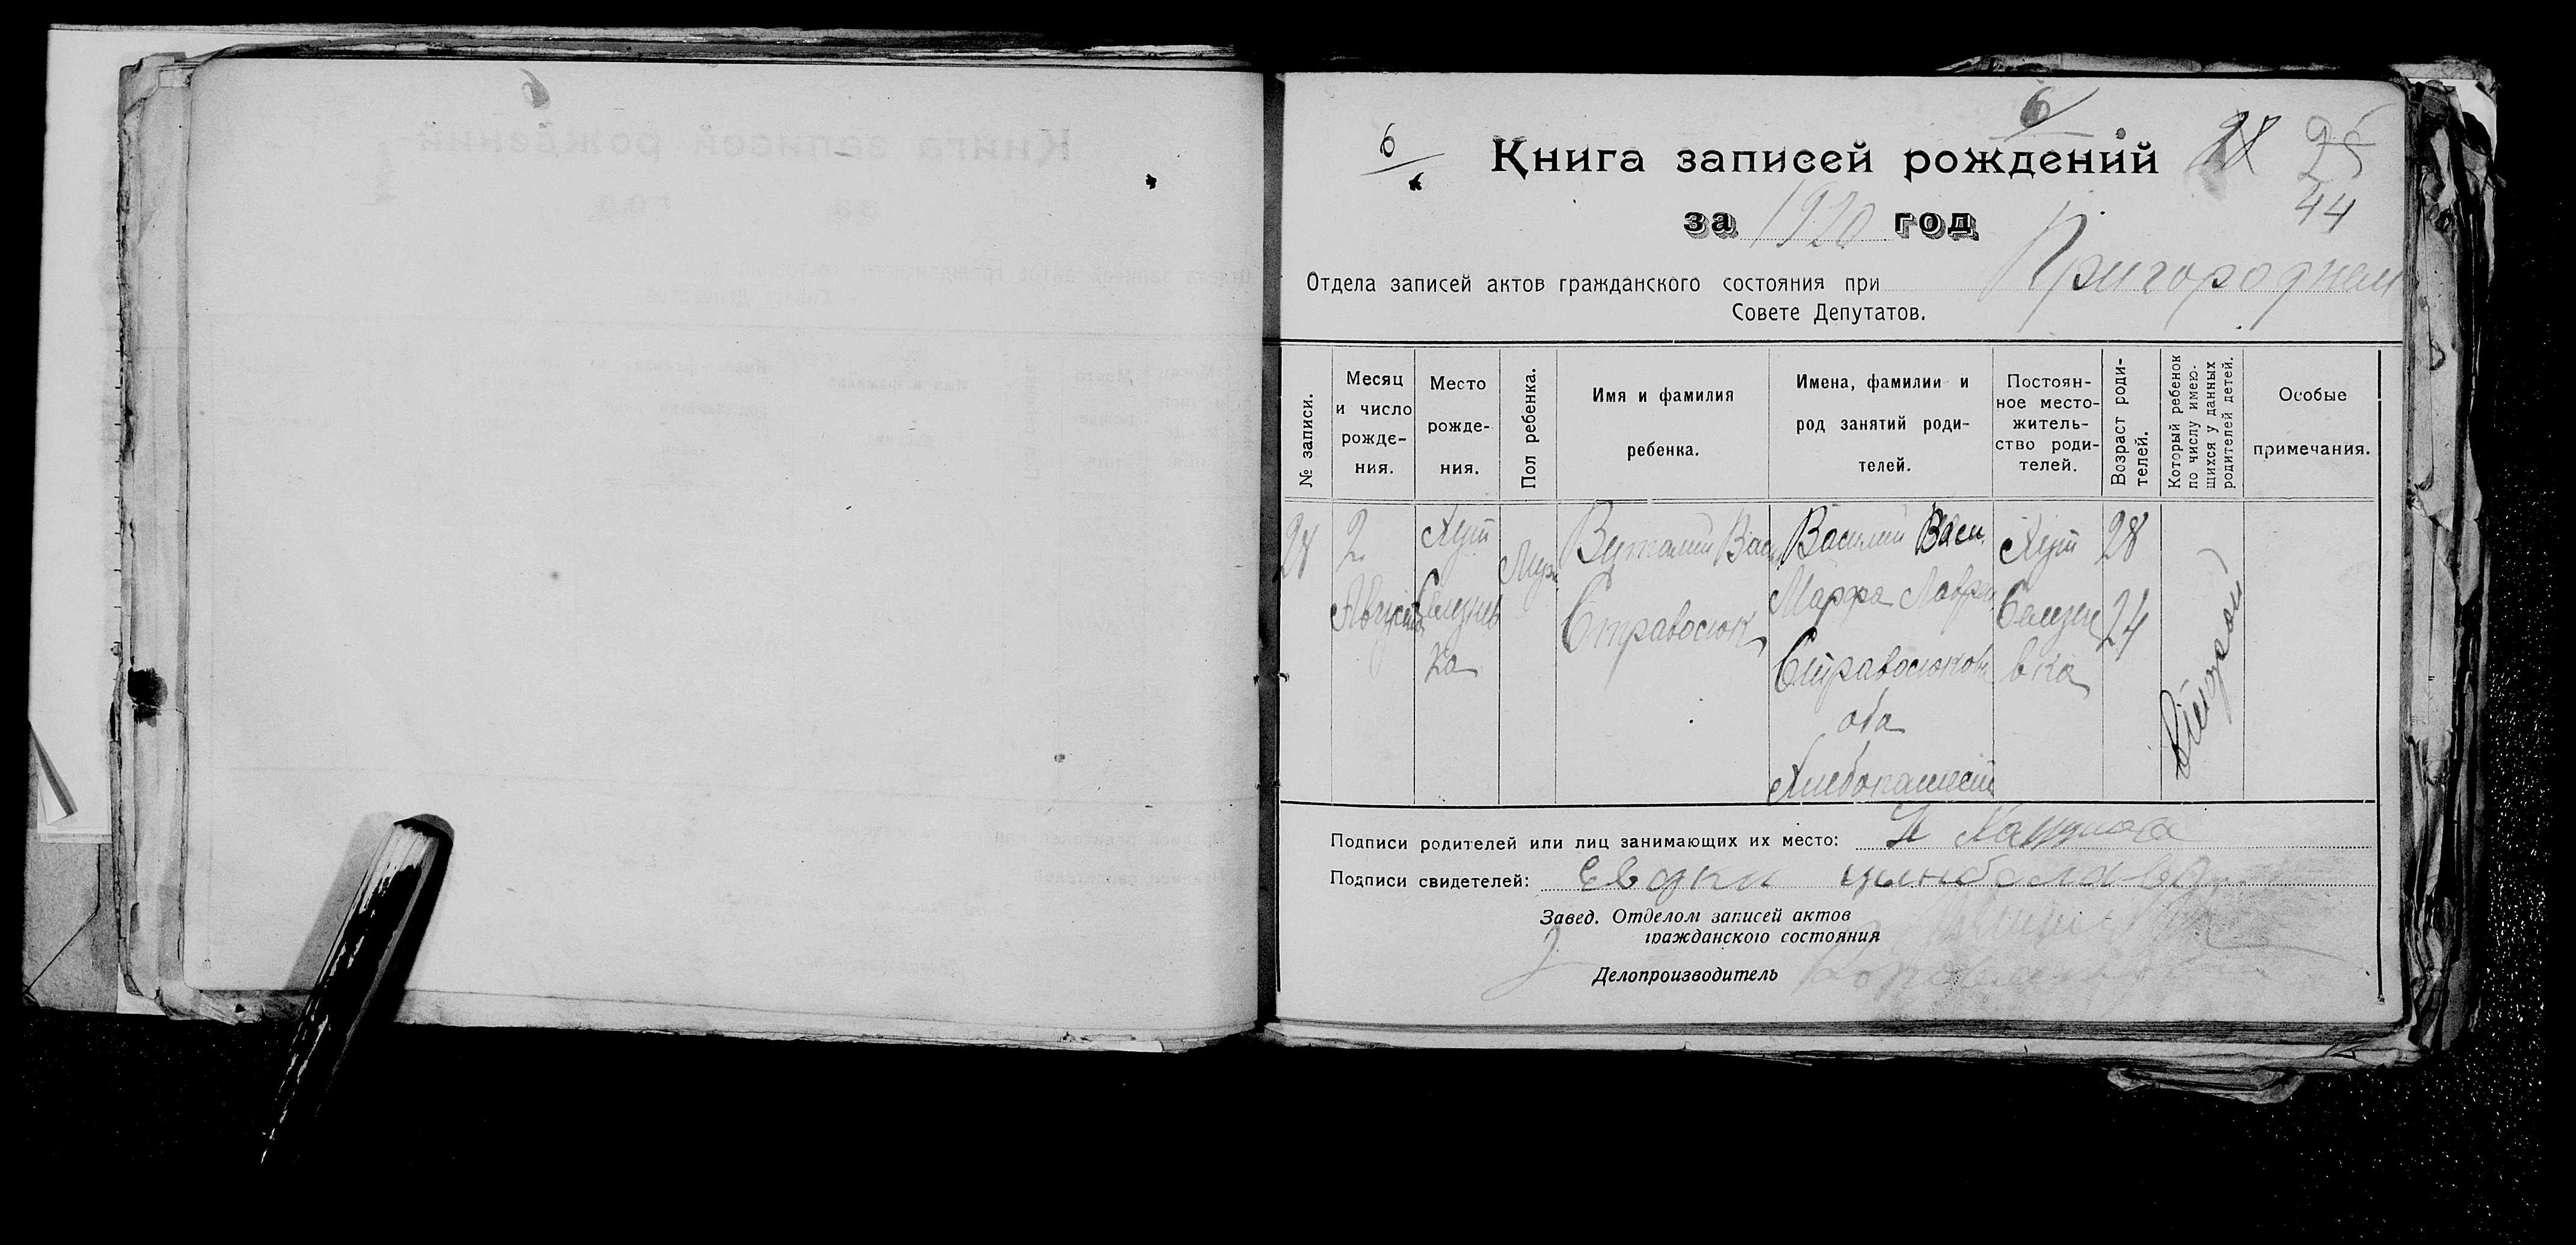 6
6
28 25
44
Книга записей рождений
за 1920 год
Отдела записей актов гражданского состояния при Пригородном
Совете Депутатов.
№ записи.
Месяц и число рожде- ния.
Место рожде- ния.
Пол ребенка.
Имя и фамилия ребенка.
Имена, фамилии и род занятий роди- телей.
Постоян- ное место- житель- ство роди- телей.
Возраст роди- телей.
Который ребенок по числу имею- щихся у данных родителей детей.
Особые примечания.
28
2
Августа
Хут
ка
Муж
Виталий Васил
Стравосюк
Василий Васи
Марфа Лавр
Стравосюков
оба
Хлебопашест
Хут
вка
28
24
Второй
Подписи родителей или лиц занимающих их место:
Подписи свидетелей:
Завед. Отделом записей актов
гражданского состояния
Делопроизводитель